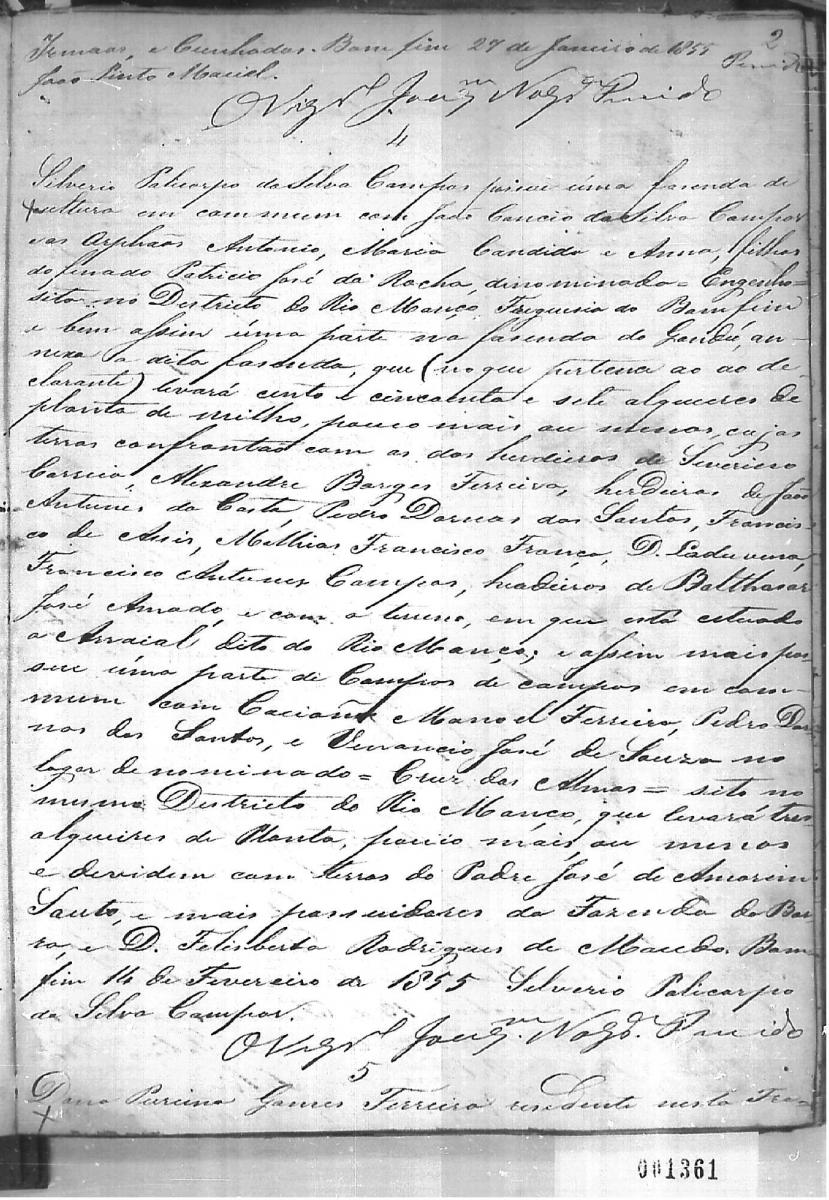 2
Irmaos, e Cunhados. Bom fim 27 de Janeiro de 1855
João Pinto Maciel.
O Vigr.º Joaq.m Nog.ª Penido
4
Silverio Policarpo da Silva Campos possue uma fasenda de
cultura em commum com João Cancio da Silva Campos
e os Orphaõs Antonio, Maria Candida e Anna, filhos
do finado Patricio José da Rocha, dinominada = Engenho =
sita no Districto do Rio Manço Freguesia do Bomfim
e bem assim uma parte na fasenda do an-
nexa a dita fasenda, que (no que pertence ao ao de-
clarante) levará cento e cincoenta e sete alqueres de
planta de milho, pouco mais ou menos, cujas
terras confrontaõ com as dos herdeiros de Severino
Correia, Alexandre Borges Ferreira, herdeiros de João
Antunes da Costa, Pedro Dornas dos Santos, Francis-
co de Assis, Mathias Francisco França, D.
Francisco Antunes Campos, herdeiros de Balthasar
José Amado, e com o terreno, em que está cituado
o Arraial dito do Rio Manço; e assim mais pos-
sue uma parte de Campos de campos em com-
mum com Manoel Ferreira, Pedro Dor-
nas dos Santos, e Venancio José de Souza no
logar denominado = Cruz das Almas = sito no
mesmo Districto do Rio Manço, que levará tres
alqueires de Planta, pouco mais, ou menos
e devidem com terras do Padre José de Amorim
Souto, e mais possuidores da Fazenda da Bar-
ra, e D. Felisberta Rodrigues de Macedo. Bom-
fim 14 de Fevereiro de 1855 Silverio Policarpo
da Silva Campos.
O Vigr.º Joaq.m Nog.ª Penido
5
Dona Gomes Ferreira residente nesta Fre-
001361